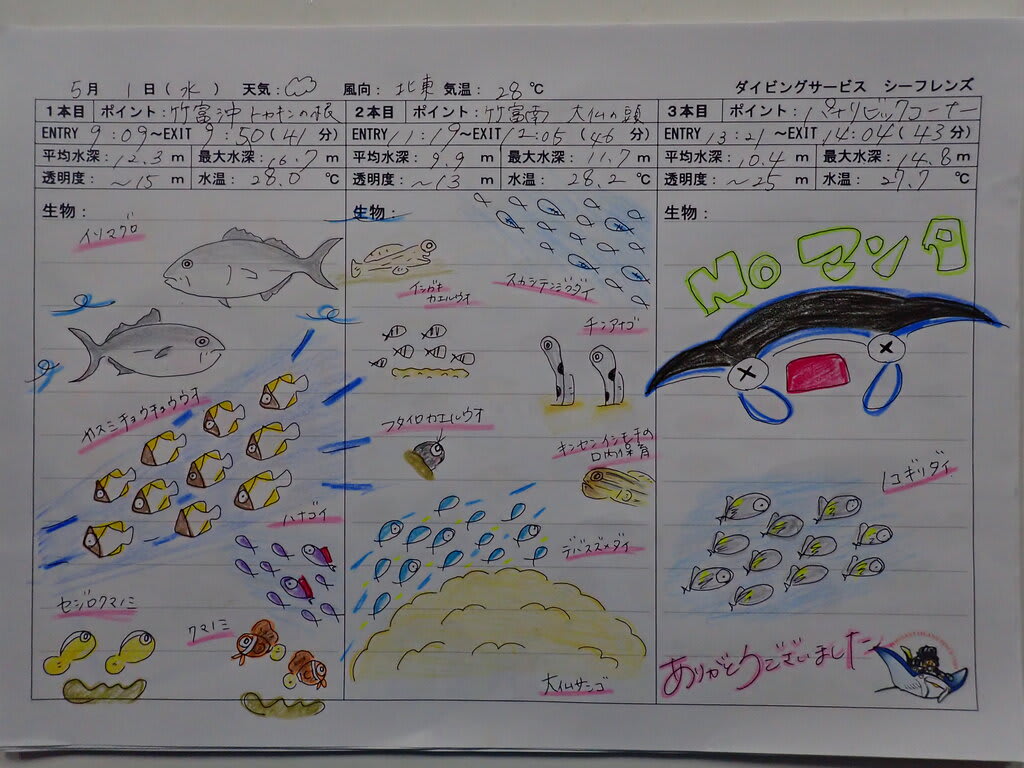 5月 1日(水) 天気: 風向: 北東 気温: 28℃ ダイビングサービス シーフレンズ
1本目 ポイント: 竹富沖 トカキンの根
ENTRY 9:09~EXIT 9:50(41分)
平均水深: 12.3m 最大水深: 16.7m
透明度: ~15m 水温: 28.0℃
生物:
イソマグロ
カスミチョウチョウウオ
ハナゴイ
セジロクマノミ
クマノミ
2本目 ポイント: 竹富南 大仏の頭
ENTRY 11:19~EXIT 12:05(46分)
平均水深: 9.9m 最大水深: 11.7m
透明度: ~13m 水温: 28.2℃
生物:
スカシテンジクダイ
イシガキ
カエルウオ
チンアナゴ
フタイロカエルウオ
キンセンイシモチの
口内保育
デバスズメダイ
大仏サンゴ
3本目 ポイント: パナリビックコーナー
ENTRY 13:21~EXIT 14:04(43分)
平均水深: 10.4m 最大水深: 14.8m
透明度: ~25m 水温: 27.7℃
生物:
No マンタ
ノコギリダイ
ありがとうございました